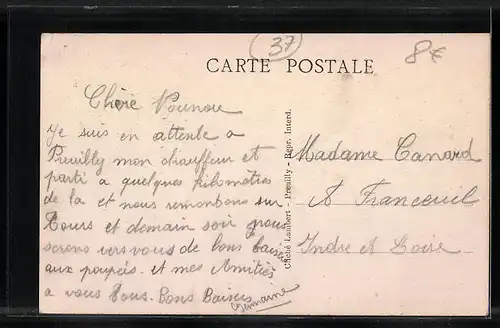 37
8€
CARTE POSTALE
Chère Nounou
Je suis en attente a
Preuilly mon chauffeur et
parti a quelques kilomètres
de la et nous remontons sur
Tours et demain soir nous
serons vers vous de bons baisers
aux poupées. et mes Amitiés
a vous tous. Bons Baisers
Germaine
Cliché Lambert - Preuilly - Repr. Interd.
Madame Canard
A Franceuil
Indre et Loire